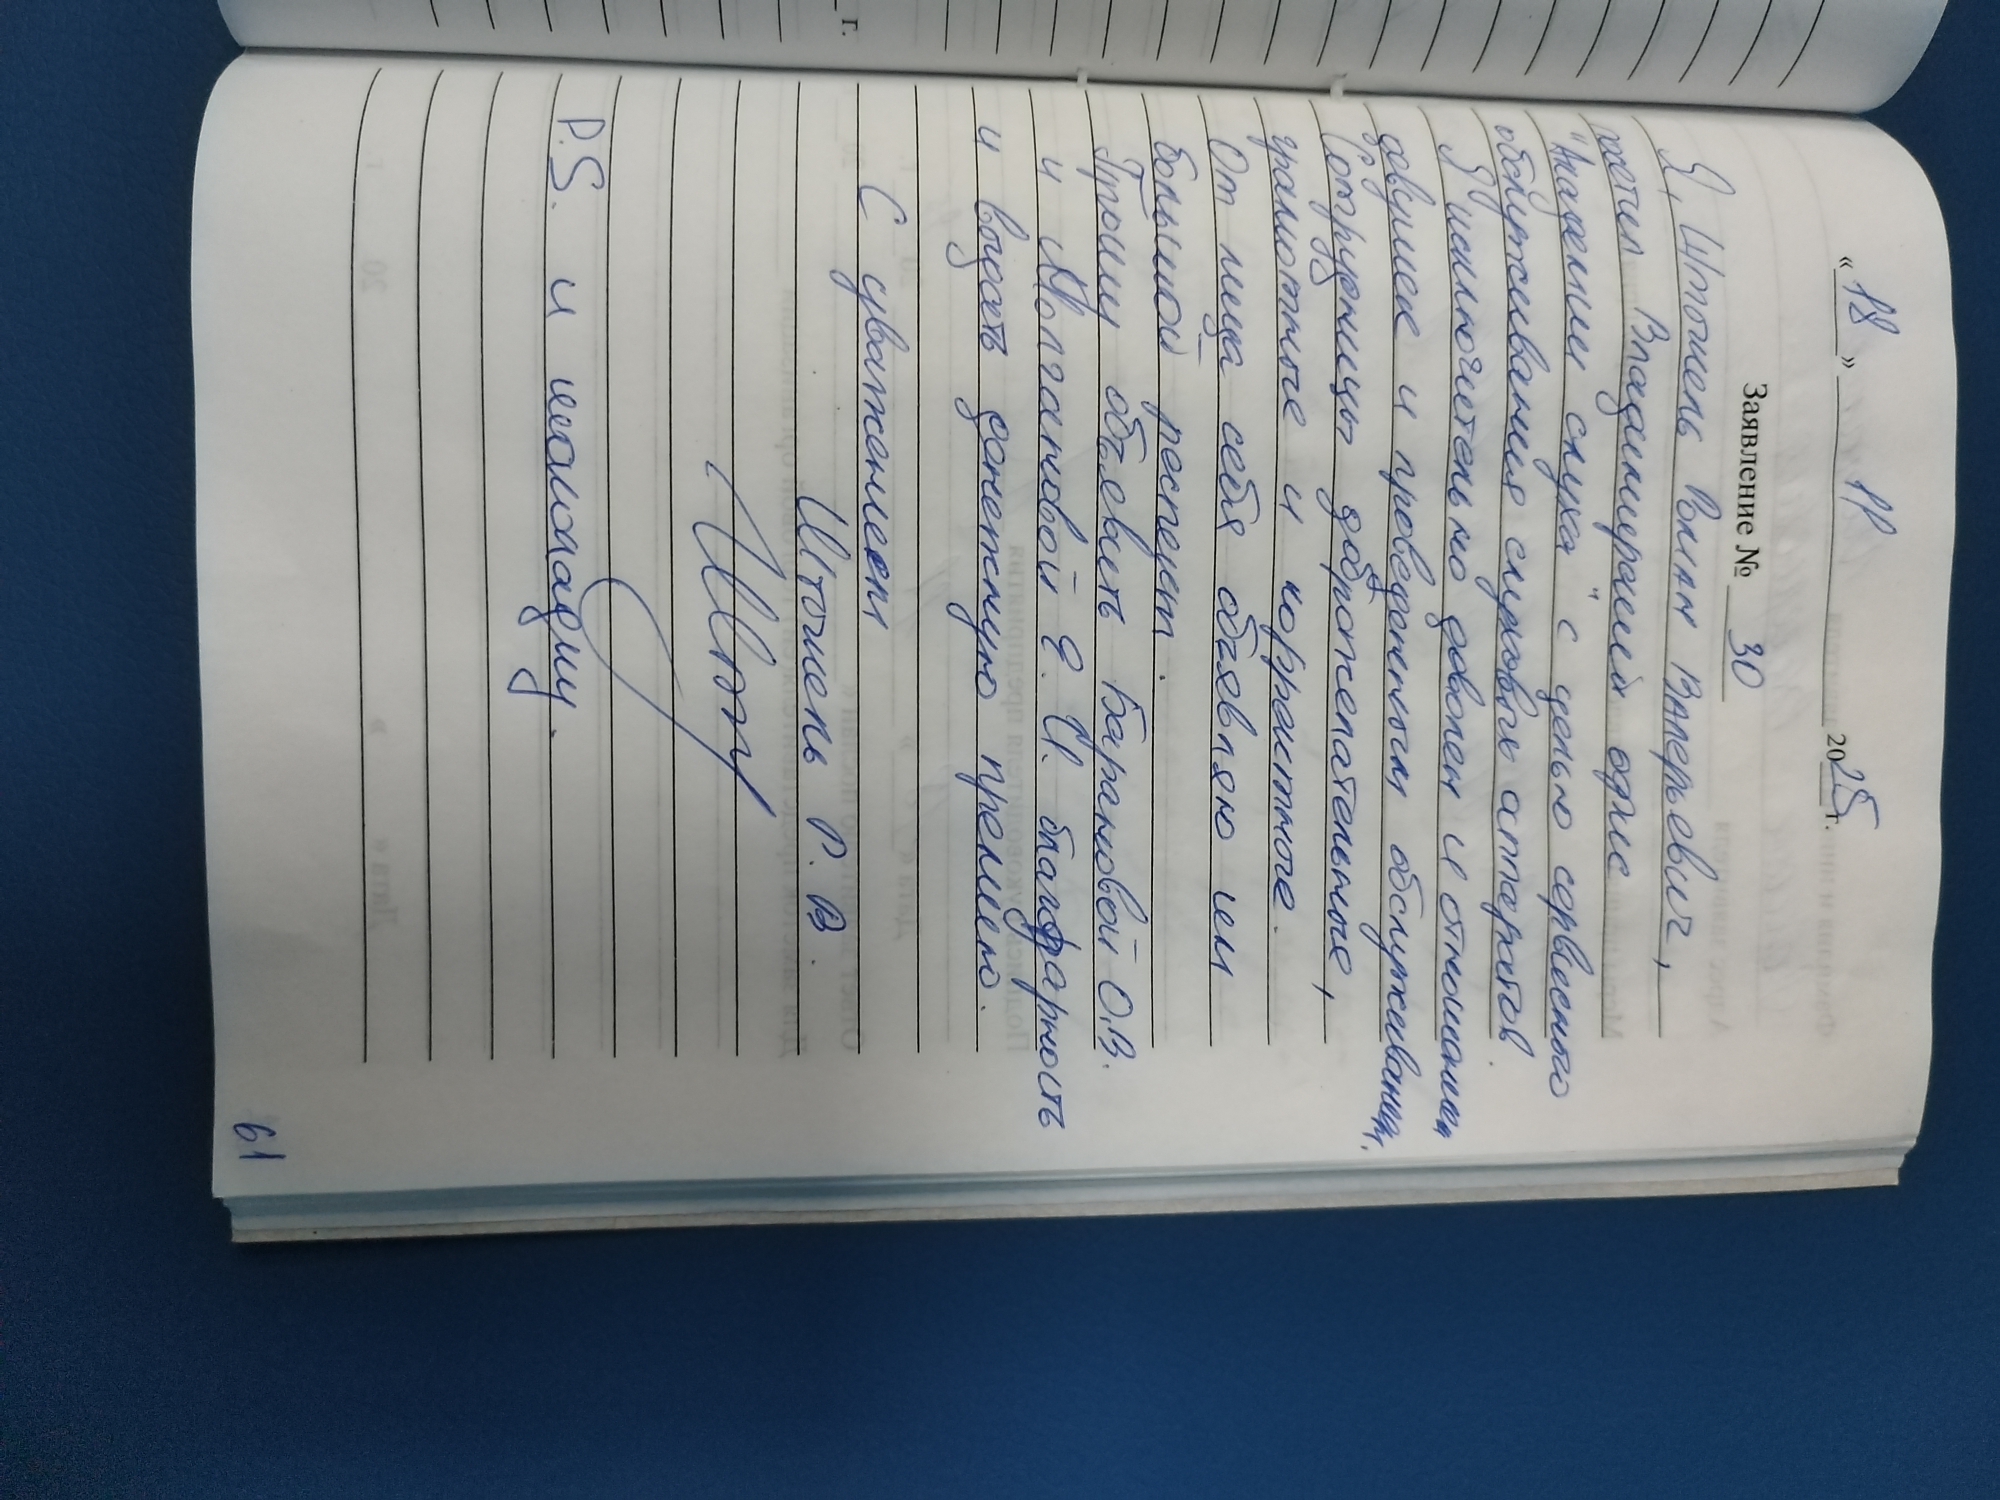 г.
« 18 » 11 2025 г.
Заявление № 30
Я, Штогнель Роман Валерьевич,
посетил Владимирский офис
"Академии слуха" с целью сервисного
обслуживание слуховых аппаратов.
Я исключительно доволен и отношением
девушек и проведенным обслуживанием.
Сотрудницы доброжелательные,
грамотные и корректные.
От лица себя объявляю им
большой респект.
Прошу объявить Барановой О.В.
и Молгановой Е. И. благодарность
и выдать денежную премию.
С уважением
Штогнель Р. В.
P.S. и шоколадку.
61